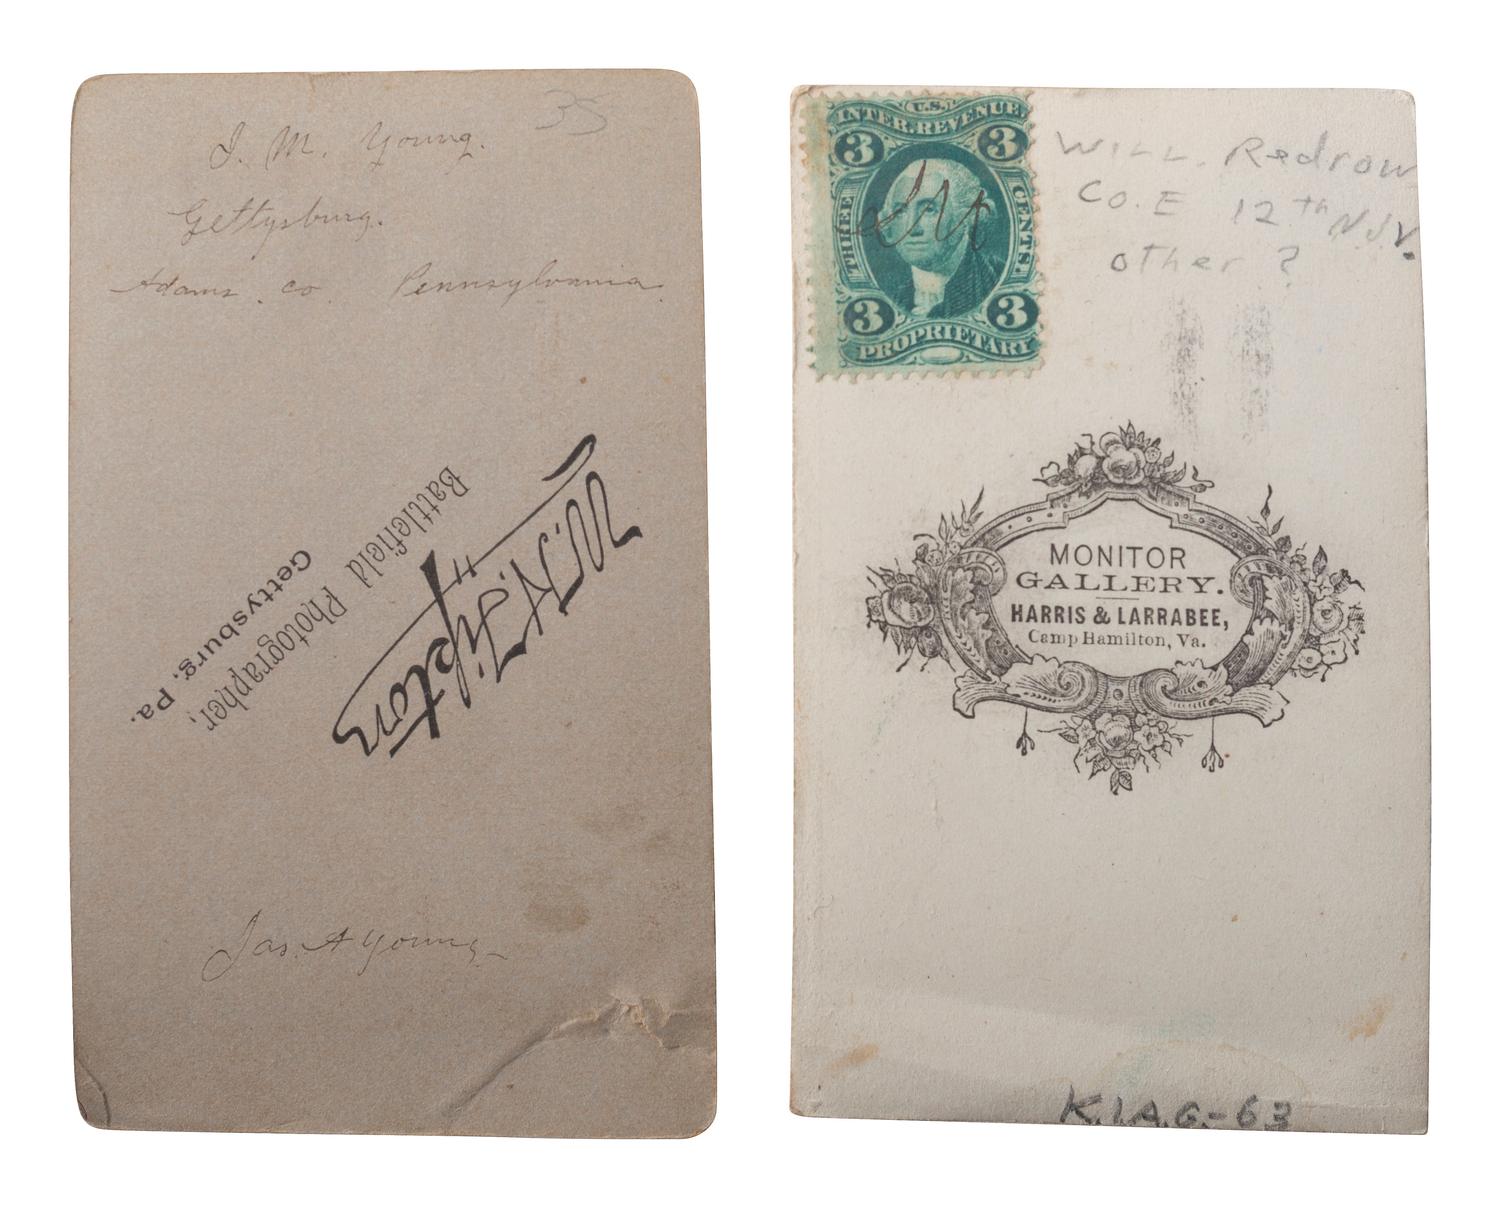 35
J. M. Young.
Gettysburg.
Adams. co. Pennsylvania.
W. H. Tipton
Battlefield Photographer,
Gettysburg, Pa.
Jas. A Young
U.S.
INTER. REVENUE
3 3
THREE CENTS.
3 3
PROPRIETARY
WILL. Redrow
CO. E 12th N.J.V.
other ?
MONITOR
GALLERY.
HARRIS & LARRABEE,
Camp Hamilton, Va.
K.I.A. 6-63